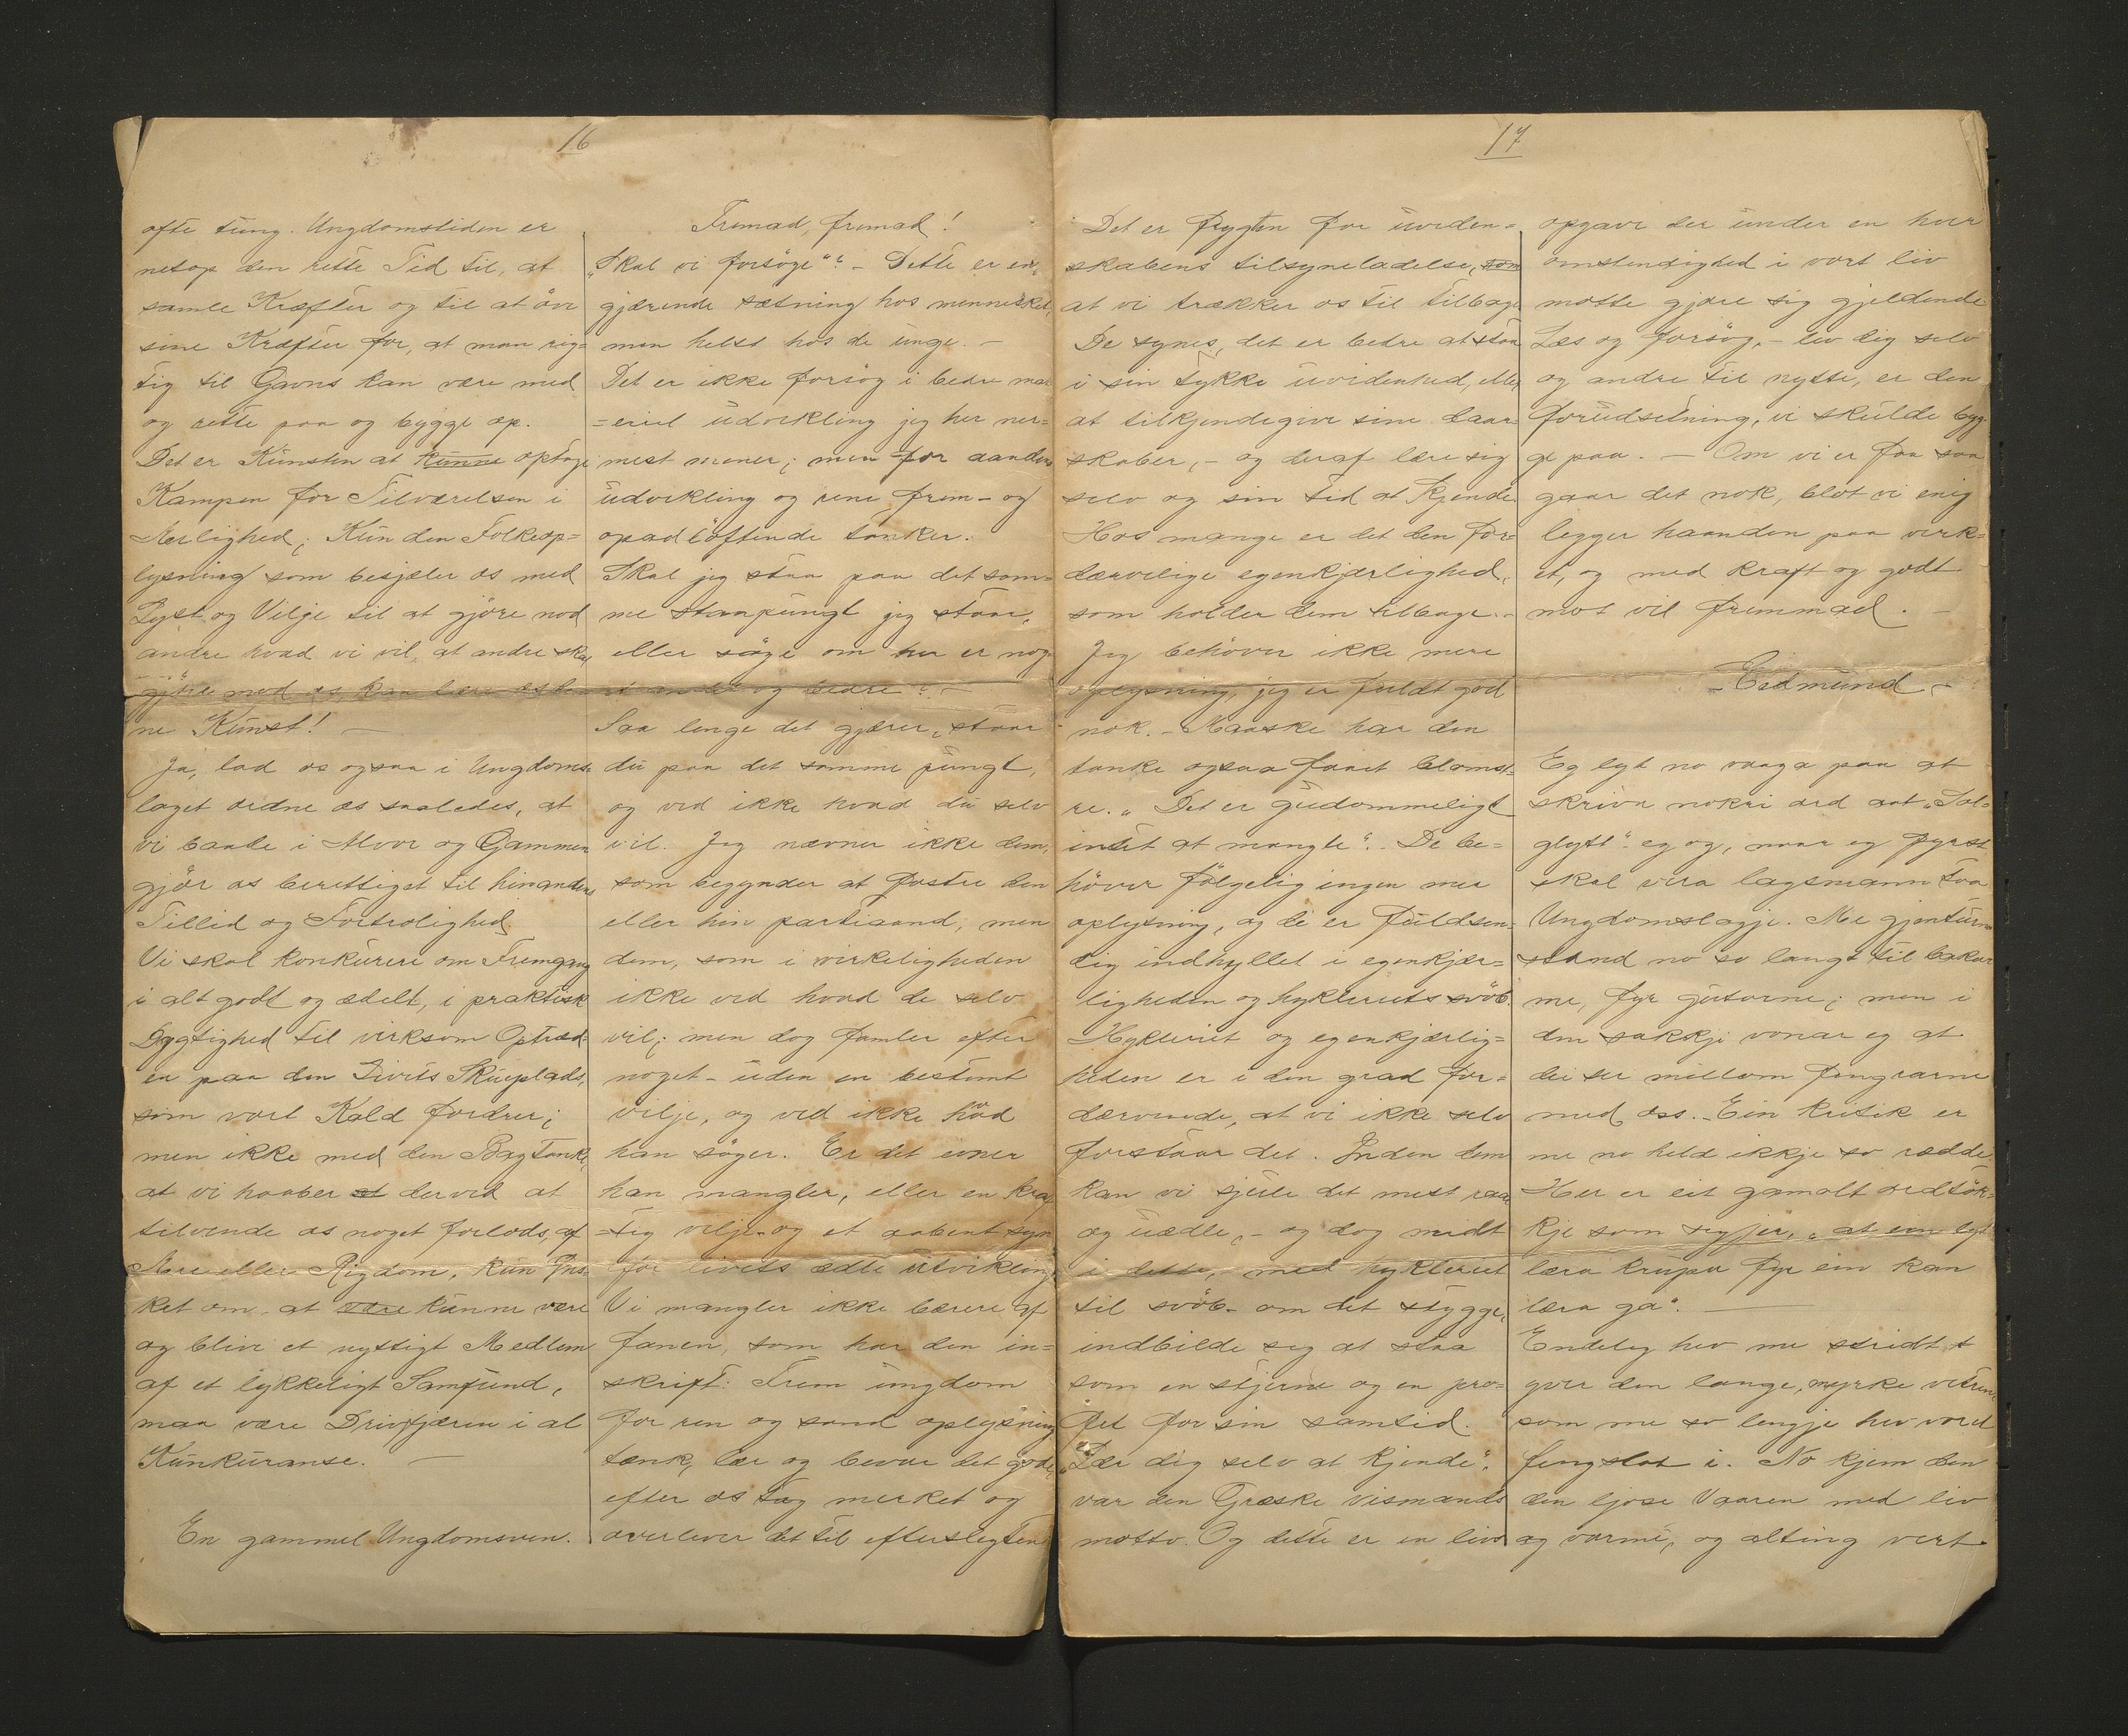 16
ofte tung. Ungdomstiden er
netop den rette Tid til, at
samle Kræfter og til at öve
sine Kræfter for, at man rig=
tig til Gavns kan være med
og rette paa og bygge op.
Det er Kunsten at kunne optage
Kampen for Tilværelsen i
Ærlighed; Kun den Folkeop=
lysning som besjæler os med
Lyst og Vilje til at gjöre mod
andre hvad vi vil, at andre skal
gjöre mod os, kan lære os den
ne Kunst! —
Ja, lad os ogsaa i Ungdoms=
laget ordne os saaledes, at
vi baade i Alvor og Gammen
gjör os berettiget til hinandens
Tillid og Fortrolighed.
Vi skal konkurere om Fremgang
i alt godt og ædelt, i praktisk
Dygtighed til virksom Optræd=
en paa den Livets Skueplads,
som vort Kald fordrer;
men ikke med den Bagtanke,
at vi haaber at derved at
tilvende os noget forlods, af
Ære eller Rigdom, kun Øns=
ket om at være kunne være
og blive et nyttigt Medlem
af et lykkeligt Samfund,
maa være Drivfjæren i al
Kunkuranse. —
En gammel Ungdomsven.
Fremad, fremad!
„Skal vi forsöge“? – Dette er en
gjærende sætning hos mennesket,
men helst hos de unge. –
Det er ikke forsög i bedre mat
=eriel udvikling jeg her nær=
mest mener; men for aandens
udvikling og rene frem- og
opadlöftende tanker.
Skal jeg staa paa det sam=
me staapungt jeg staar,
eller söge om her er nog
et andet og bedre? –
Saa lenge det gjærer, staar
du paa det samme pungt,
og ved ikke hvad du selv
vil. Jeg nævner ikke dem,
som begynder at fostre den
eller hin partiaand; men
dem, som i virkeligheden
ikke ved hvad de selv
vil; men dog famler efter
noget – uden en bestemt
vilje, og ved ikke hvad
han söger. Er det evner
han mangler, eller en kraf
=tig vilje og et aabent syn
for livets ædle utvikling?
Vi mangler ikke bærere af
fanen, som har den in=
skrift: Frem ungdom
for ren og sand oplysning
tænk, lær og bevar det gode,
efter os tag merket og
overlever det til efterslegten
17
Det er frygten for uviden=
skabens tilsyneladelse, som
at vi trækker os til tilbage
De synes, det er bedre at staa
i sin tykke uvidenhed, eller
at tilkjendegive sine daar=
skaber, – og deraf lære sig
selv og sin tid at kjende
Hos mange er det den for=
dærvelige egenkjærlighed,
som holder dem tilbage. –
Jeg behöver ikke mere
oplysning, jeg er fuldt god
nok. – Kanske har den
tanke ogsaa faaet blomst=
re. „Det er gudommeligt
intet at mangle“. De be=
höver fölgelig ingen mer
oplysning, og de er fuldsen=
dig indhyllet i egenkjær=
ligheden og hykleriets svöb.
Hykleriet og egenkjærlig=
heden er i den grad for=
dærvende, at vi ikke selv
forstaar det. Inden dem
kan vi sjule det mest raa
og uædle, – og dog midt
i dette, med hykleriet
til svöb – om det stygge,
indbilde seg at staa
som en stjerne og en pro=
fet for sin samtid.
„Lær dig selv at kjende“,
var den Græske vismands
motto. Og dette er en livs
opgave der under en hver
omstendighed i vort liv
motte gjøre sig gjeldende
Læs og forsög, – lev dig selv
og andre til nytte, er den
forudsetning, vi skulde byg
ge paa. – Om vi er faa saa
gaar det nok, blot vi enig
legger haanden paa verk=
et, og med kraft og godt
mot vil fremmad. –
– Eidmund –
Eg lyt no vaaga paa at
skriva nokri ord aat „Sol=
glytt“ eg og, naar eg fyrst
skal vera lagsmann tva
Ungdomslagje. Me gjenturne
stand no so langt til bakar
me, fyr gutarne; men i
den sakkji vonar eg at
dei ser millom fingrarne
med oss. – Ein kritik er
me no held ikkje so rædde.
Her er eit gamalt ordtök=
kje som segjer, „at ein lyt
læra krupa fyr ein kan
læra ga“. —
Endeleg hev me stridt
yver den lange, myrke vetren,
som me so lengje hev vorit
fengslat i. No kjem den
den ljose Vaaren med liv
og varme, og alting vert